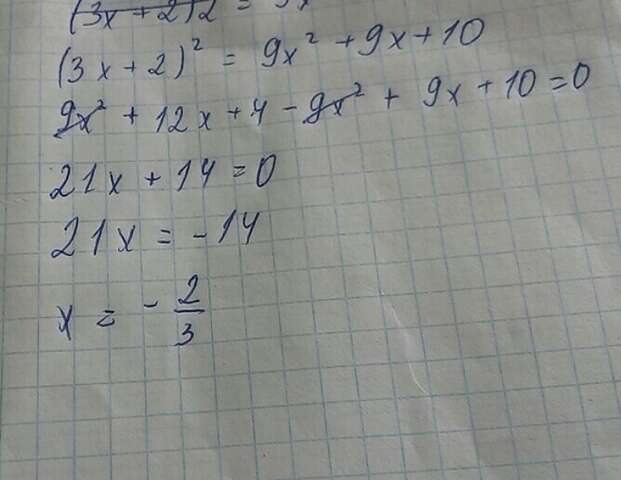 (3x+2)2 =
(3x+2)² = 9x² +9x+10
9x² + 12x +4 - 9x² + 9x +10 =0
21x + 14 =0
21x = -14
x = - 2/3